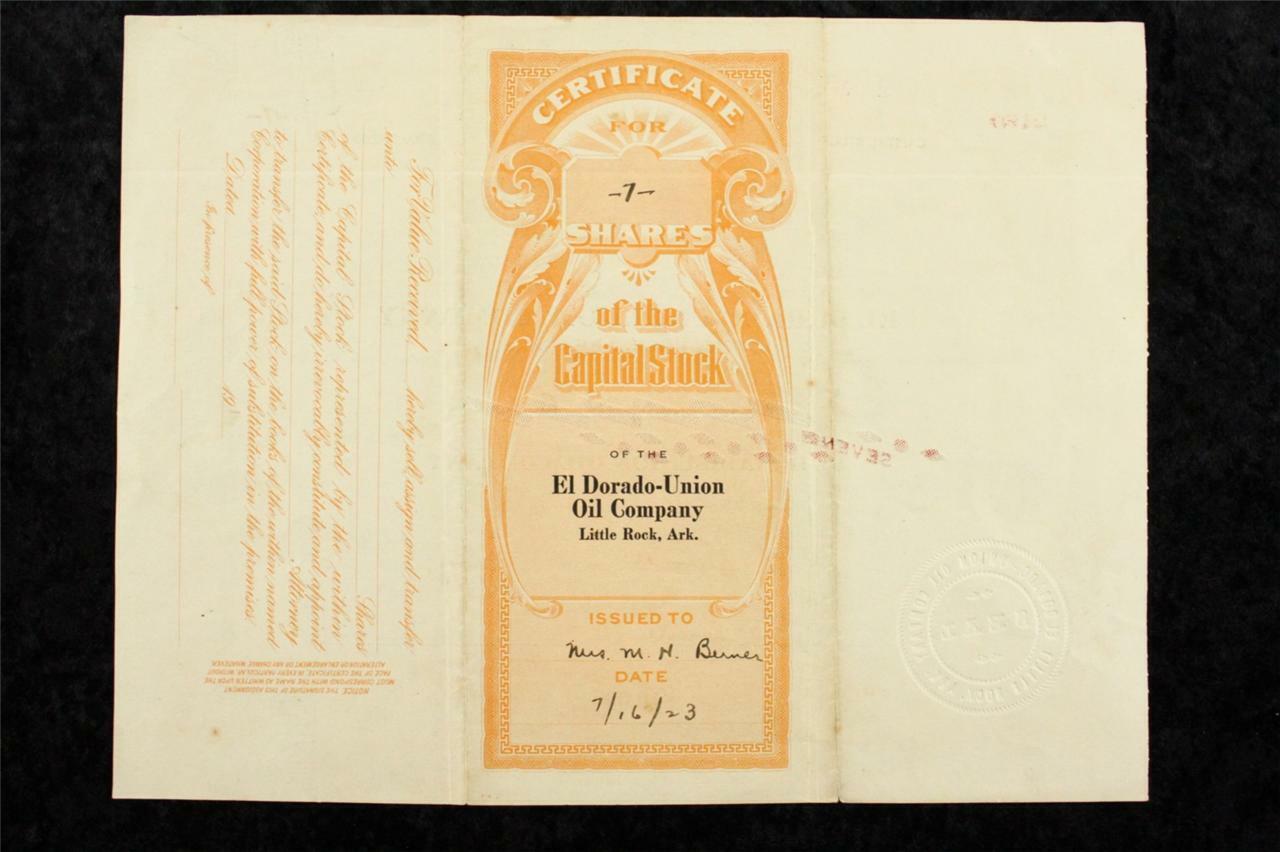 CERTIFICATE
FOR
-7-
SHARES
of the
Capital Stock
OF THE
El Dorado-Union
Oil Company
Little Rock, Ark.
ISSUED TO
Mrs. M. H. Berner
DATE
7/16/23
For Value Received hereby sell, assign and transfer
unto
Shares
of the Capital Stock represented by the within
Certificate, and do hereby irrevocably constitute and appoint
Attorney
to transfer the said Stock on the books of the within named
Corporation with full power of substitution in the premises.
Dated 19
In presence of
NOTICE. THE SIGNATURE OF THIS ASSIGNMENT
MUST CORRESPOND WITH THE NAME AS WRITTEN UPON THE
FACE OF THE CERTIFICATE, IN EVERY PARTICULAR, WITHOUT
ALTERATION OR ENLARGEMENT OR ANY CHANGE WHATEVER.
SEVEN
SEAL